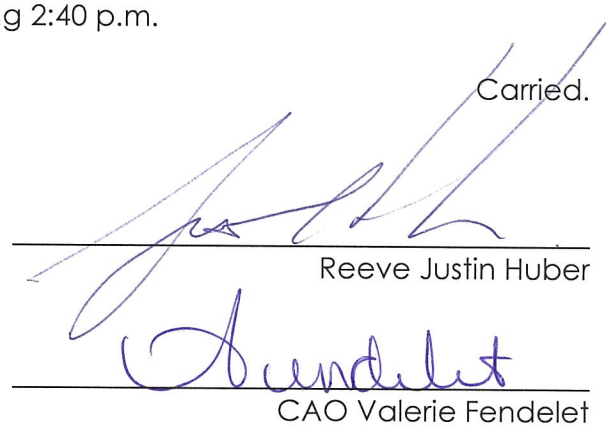 g 2:40 p.m.
Carried.
Reeve Justin Huber
CAO Valerie Fendelet